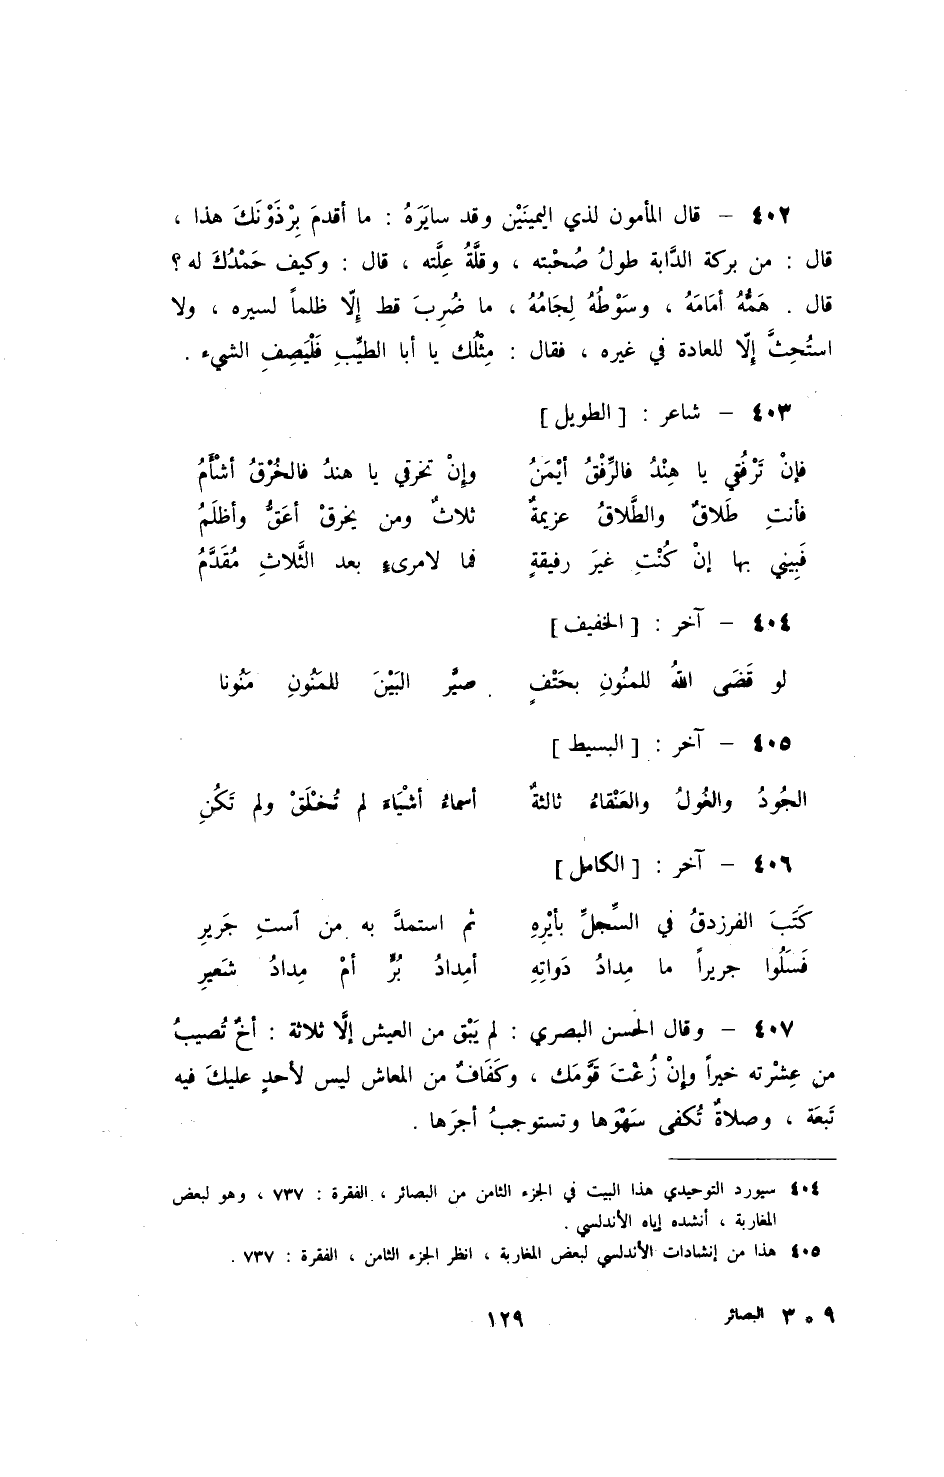 ٤٠٢ – قال المأمون لذي اليمينَيْن وقد سايَرَهُ : ما أقدمَ بِرْذَوْنَكَ هذا ،
قال : من بركة الدَّابة طولُ صُحْبته ، وقلَّةُ علَّته ، قال : وكيف حَمْدُكَ له ؟
قال . هَمُّهُ أمَامَهُ ، وسَوْطُهُ لِجَامُهُ ، ما ضُرِبَ قط إلّا ظلماً لسيره ، ولا
استُحِثَّ إلّا للعادة في غيره ، فقال : مِثْلُك يا أبا الطيِّبِ فَلْيَصِفِ الشيء .
٤٠٣ – شاعر : [ الطويل ]
فإنْ تَرْفُقي يا هِنْدُ فالرِّفْقُ أيْمَنُ وإنْ تخرقي يا هندُ فالخُرْقُ أشْأَمُ
فأنتِ طَلاقٌ والطَّلاقُ عزيمةٌ ثلاثٌ ومن يخرقْ أعَقُّ وأظلَمُ
فَبِيني بها إنْ كُنْتِ غيرَ رفيقةٍ فما لامرىءٍ بعد الثَّلاثِ مُقَدَّمُ
٤٠٤ – آخر : [ الخفيف ]
لو قَضَى اللهُ للمنُونِ بحَتْفٍ صيَّر البَيْنَ للمَنُونِ مَنُونا
٤٠٥ – آخر : [ البسيط ]
الجُودُ والغُولُ والعَنْقاءُ ثالثةٌ أسماءُ أشْيَاءَ لم تُخْلَقْ ولم تَكُنِ
٤٠٦ – آخر : [ الكامل ]
كَتَبَ الفرزدقُ في السِّجلِّ بأيْرِهِ ثم استمدَّ به من آستِ جَريرِ
فَسَلُوا جريراً ما مِدادُ دَواتِهِ أمِدادُ بُرٍّ أمْ مِدادُ شَعيرِ
٤٠٧ – وقال الحسن البصري : لم يَبْق من العيش إلَّا ثلاثة : أخٌ تُصيبُ
من عِشْرته خيراً وإنْ زُغْتَ قَوَّمَك ، وكَفَافٌ من المعاش ليس لأحدٍ عليكَ فيه
تَبعَة ، وصلاةٌ تُكفى سَهْوَها وتستوجبُ أجرَها .
٤٠٤ سيورد التوحيدي هذا البيت في الجزء الثامن من البصائر ، الفقرة : ٧٣٧ ، وهو لبعض
المغاربة ، أنشده إياه الأندلسي .
٤٠٥ هذا من إنشادات الأندلسي لبعض المغاربة ، انظر الجزء الثامن ، الفقرة : ٧٣٧ .
٩ ٥ ٣ البصائر ١٢٩